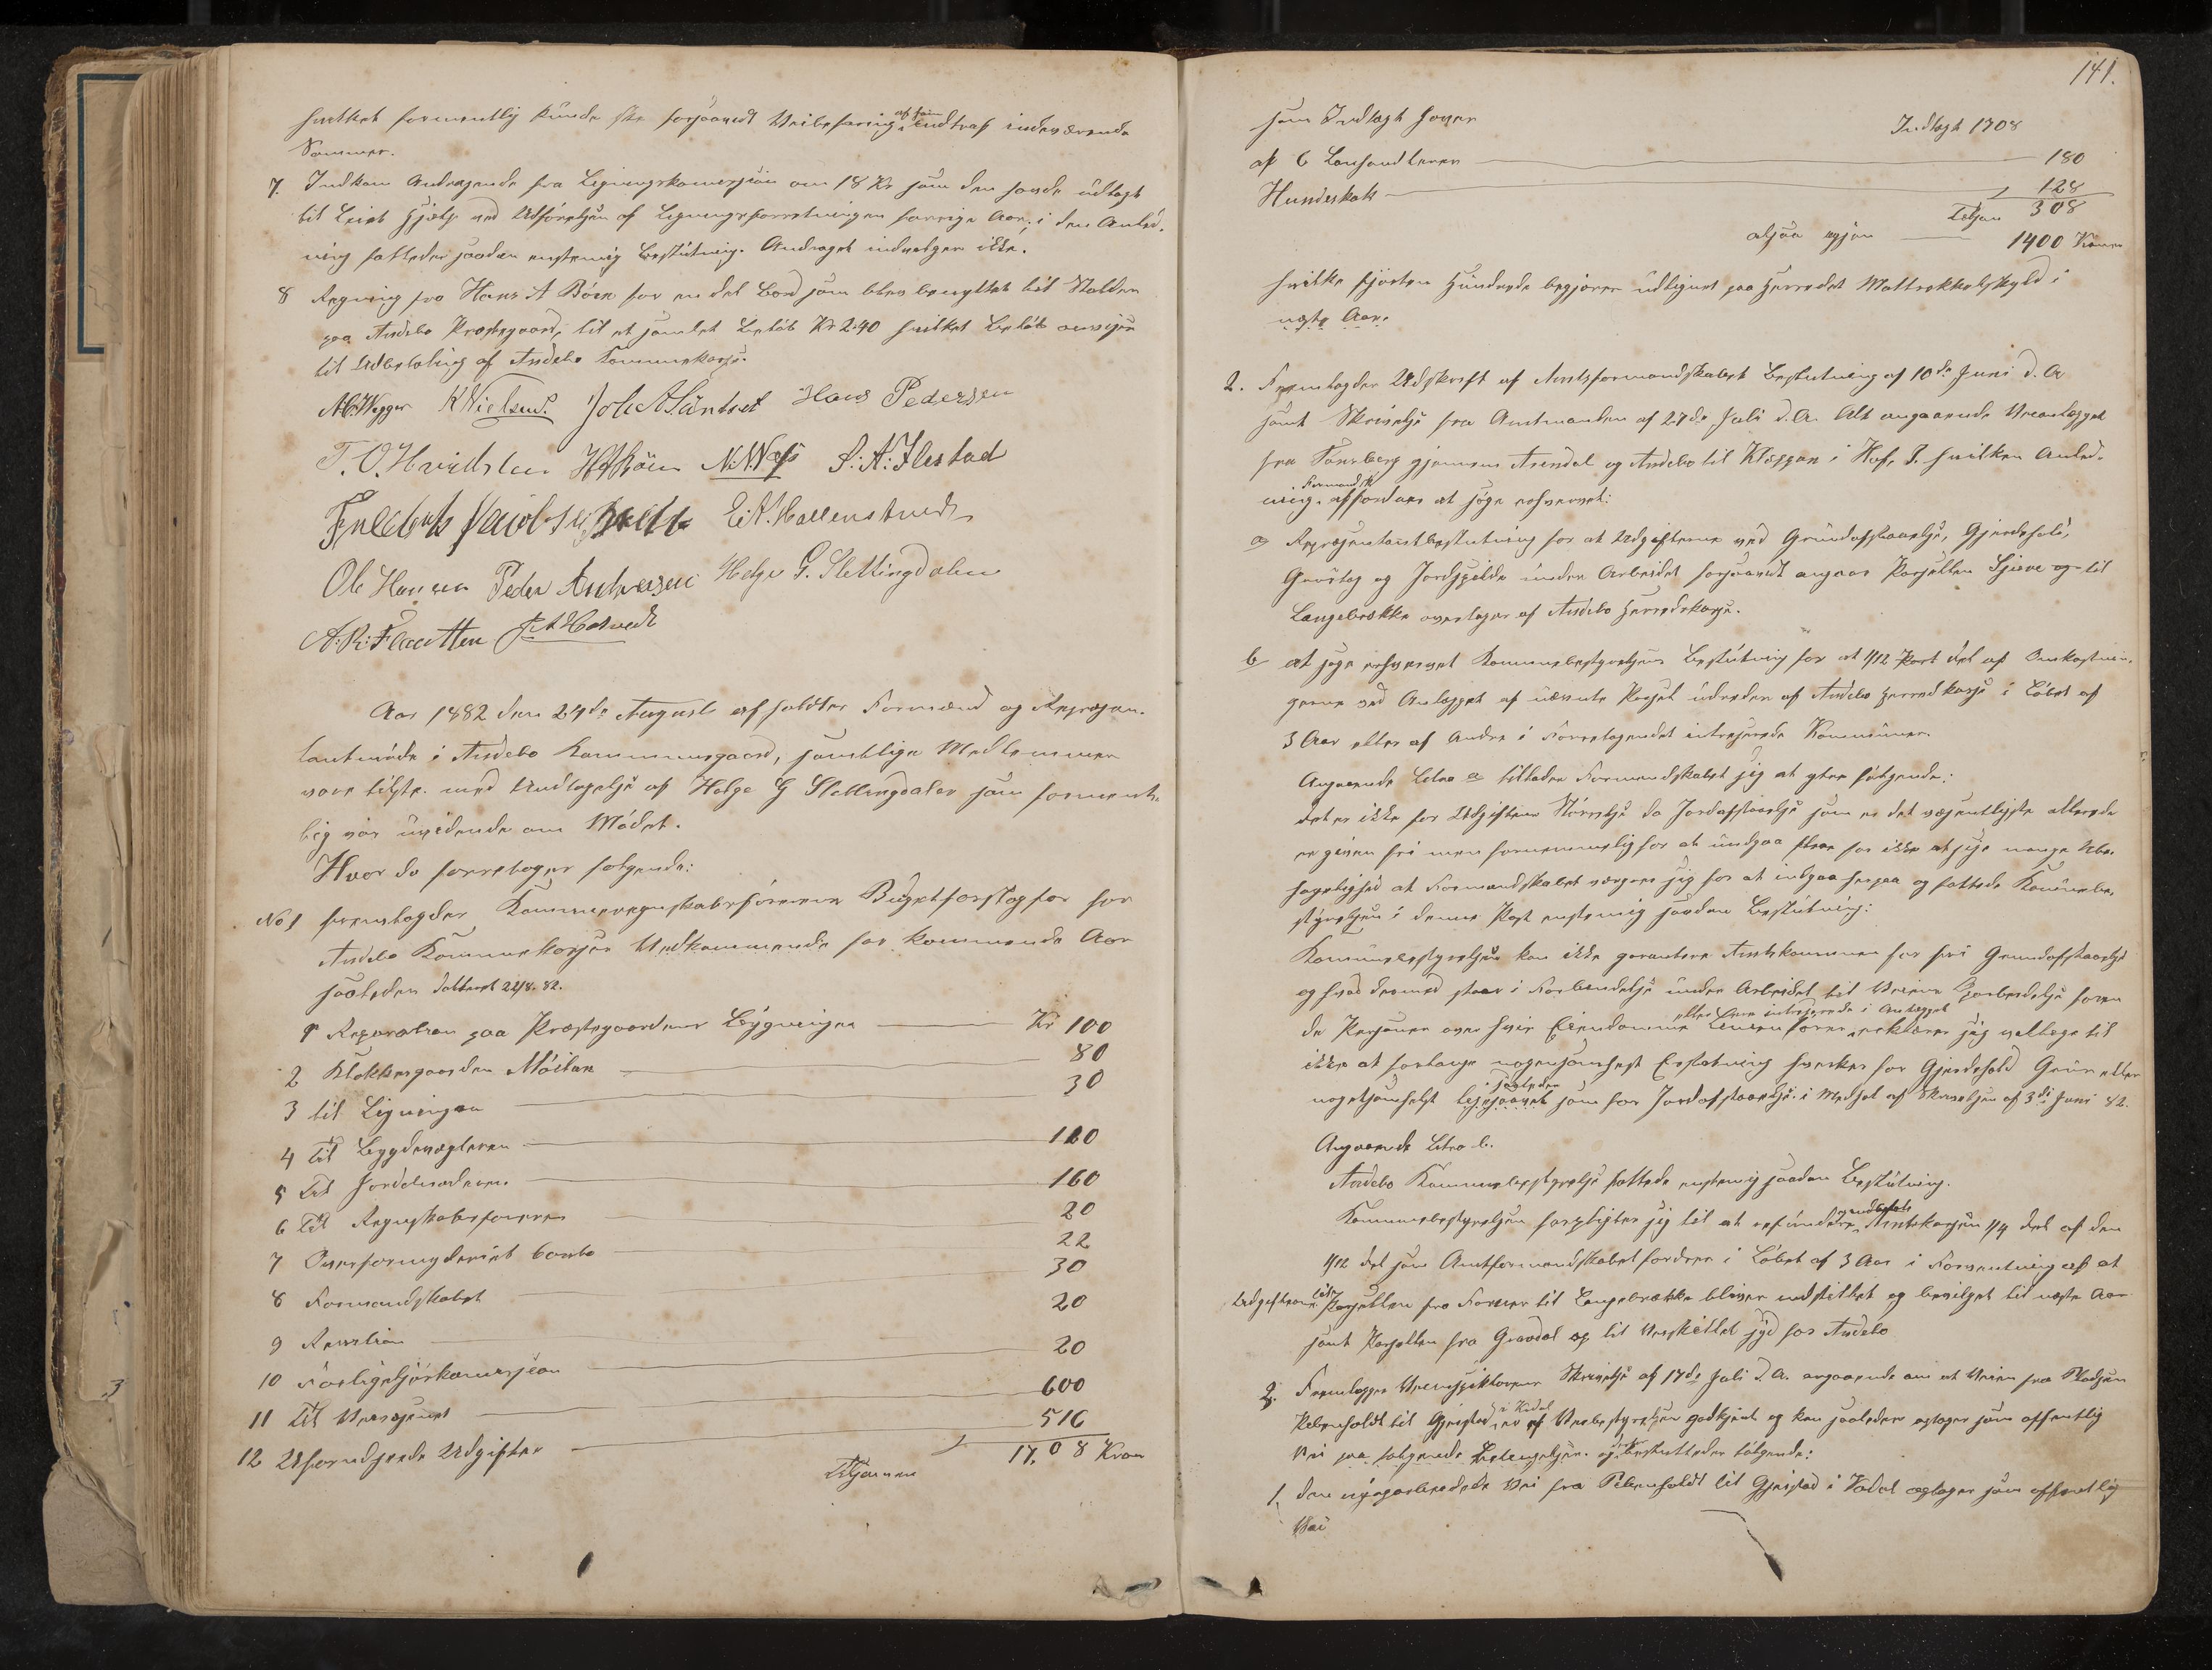 hvilket formentlig kunde ske forsaavidt Veibefaring af som indtraf indeværende
Sommer.
7. Indkom Andragende fra Ligningskomissjon om 18 Kr som den havde udlagt
til Leiet Hjælp ved Udførelsen af Ligningsforretningen forrige Aar, i den Anled-
ning fattedes saadan enstemig Beslutning. Andraget indvilges ikke.
8 Regning fra Hans A Böen for en del Bord som blev benyttet til Stolden
paa Andebo Præstegaard, til et samlet Beløb Kr 2.40 hvilket Beløb anvises
til Udbetaling af Andebo Kommunekasse.
K Nielsen. Joh A Säntvet Hans Pedersen
T. O. Hvidsten H A Böen N. N. Vap S: A: Ilestad
Fredrik Jacobsen E. A. Hallenstvedt
Ole Hansen Peder Andresen Helge G. Slettingdalen
A. R: Flaatten
Aar 1882 den 24de August afholdtes Formænd og Repræsen-
tantmøde i Andebo Kommunegaard, samtlige Medlemmer
vare tilste. med Undtagelse af Helge G Slettingdalen som forment-
lig var uvidende om Mødet.
Hvor da foretoges følgende:
No 1 fremlagdes Kommuneregnskabsførerens Budgetforslag for
Andebo Kommunekasses Vedkommende for kommende Aar
saaledes datteret 22/8. 82.
1 Reparation paa Præstegaardens Bygninger Kr 100
2 Klokkergaarden Møilan 80
3 til Ligningen 30
4 Til Bygdevægteren 110
5 Til Jordemoderen 160
6 Til Regnskabsføreren 20
7 Overformynderiet 22
8 Formandskabet 30
9 Revision 20
10 Forligelseskomissjon 20
11 Til Veivæsenet 600
12 Uforudseede Udgifter 516
Tilsamen 17,08 Kron
141.
som Indtægt haves Indtægt 1708
af 6 Lanhandlerer 180
Hundeskat 128
Tilsam 308
altsaa igjen 1400 Kroner
hvilke fjorten Hundrede begjæres udlignet paa Herredets Matrikkelskyld i
næste Aar.
2. Fremlagdes Udskrift af Amtsformandskabets Beslutning af 10de Juni d. A
samt Skrivelse fra Amtmanden af 27de Juli d. A. Alt angaaende Veianlægget
fra Tønsberg gjennem Arendal og Andebo til Kleppan i Hof. I hvilken Anled-
ning Formandsk. affordres at søge erhvervet:
a Repræsentantbeslutning for at Udgifterne ved Grundafstaaelse, Gjerdehold,
Grustag og Jordspilde under Arbeidet forsaavidt angaar Parsellen Sjeve og til
Langebrække overtages af Andebo Herredskasse.
b at søge erhvervet Kommunebestyrelsens Beslutning for at 1/12 Part del af Omkostnin-
gerne ved Anlægget af nævnte Parsel udredes af Andebo Herredkasse i Løbet af
3 Aar eller af Andre i Foretagendet intreserede Kommuner.
Angaaende Litra a tillader Formandskabet sig at ytre følgende:
det er ikke for Udgifternes Størrelse da Jordafstaaelse som er det væsentligste allerede
er given fri men fornemmelig for at undgaa flere for ikke at sige mange Ube-
hageligheder at Formandskabet vægrer sig for at indgaa herpaa og fattede Kommunebe-
styrelsen i denne Post enstemig saadan Beslutning:
Kommunebestyrelsen kan ikke garantere Amtskommunen for fri Grundafstaaelse
og hvad dermed staar i Forbindelse under Arbeidet til Veiens Oparbeidelse foren
de Personer over hvis Eiendomme Linien føres eller ere intreserede i Anlægget erklærer sig vellige til
ikke at forlange nogensomhelst Erstatning hverken for Gjerdehold Grus eller
nogetsomhelst saaledes som for Jordafstaaelse i Medhol af Skrivelsen af 3de Juni 82.
Angaaende Litra b.
Andebo Kommunebestyrelse fattede enstemig saadan Beslutning.
Kommunebestyrelsen forpligter sig til at refundere Amtskassen 1/4 del af den
1/12 del som Amtformandskabet fordrer i Løbet af 3 Aar i Forventning af at
Udgifterne til Parsellen fra Forver til Langebrække bliver indstillet og bevilget til næste Aar
samt Parsellen fra Gravdal og til Veiskillet syd for Andebo
3. Fremlagges Veiinspiktørens Skrivelse af 17de Juli d. A. angaaende om at Veien fra Pladsen
Pebenholdt til Gjerstad i Kodal er af Veibestyrelsen godkjent og kan saaledes optages som offentlig
Vei paa følgende Betingelser. og besluttedes følgende:
1. den nyoparbeidede Vei fra Pebenholdt til Gjerstad i Kodal optages som offentlig
Vei